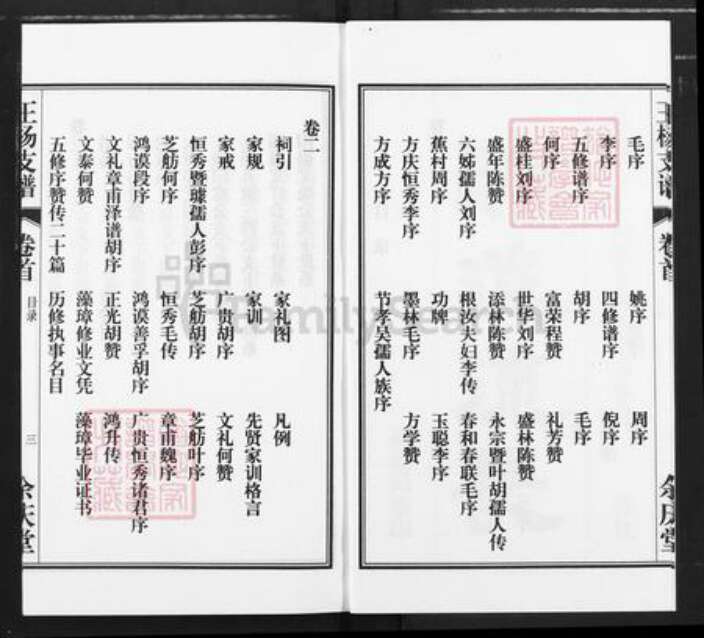 毛序 姚序 周序
李序 四修谱序 倪序
五修谱序 胡序 毛序
何序 富荣程赞 礼芳赞
盛桂刘序 世华刘序 盛林陈赞
盛年陈赞 添林陈赞 永宗暨叶胡孺人传
六姊孺人刘序 根汝夫妇李传 春和春联毛序
蕉村周序 功牌 玉聪李序
方庆恒秀李序 墨林毛序 方学赞
方成方序 节孝吴孺人族序
卷二
祠引 家礼图 凡例
家规 家训 先贤家训格言
家戒 广贵胡序 文礼何赞
恒秀暨璩孺人彭序 芝舫胡序 芝舫叶序
芝舫何序 恒秀毛传 章甫魏序
鸿谟段序 鸿谟善孚胡序 广贵恒秀诸君序
文礼章甫泽谱胡序 正光胡赞 鸿升传
文泰何赞 藻璋修业文凭 藻璋毕业证书
五修序赞传二十篇 历修执事名目
王杨支谱 卷首 目录 三 余庆堂
FamilySearch